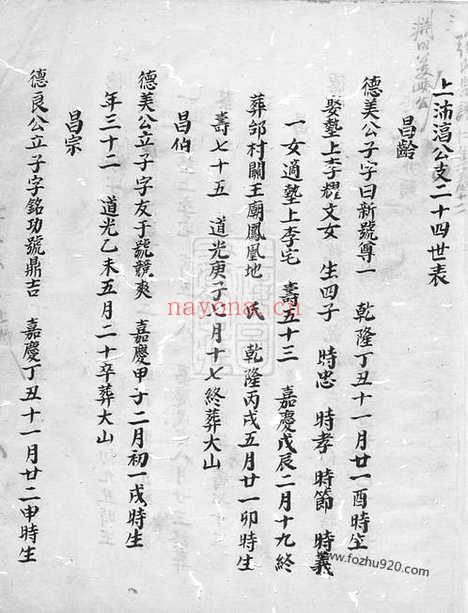 上沛濄公支二十四世表
昌齡
德美公子字曰新號尊一 乾隆丁丑十一月廿一酉時生
娶墊上李耀文女 生四子 時忠 時孝 時節 時義
一女適墊上李宅 壽五十三 嘉慶戊辰二月十九終
葬邰村關王廟鳳凰地 氏 乾隆丙戌五月廿一卯時生
壽七十五 道光庚子 月十七終葬大山
昌伯
德美公立子字友于號競爽 嘉慶甲子二月初一戌時生
年三十二 道光乙未五月二十卒葬大山
昌宗
德良公立子字銘功號鼎吉 嘉慶丁丑十一月廿二申時生
nayona.cn
www.fozhu920.com